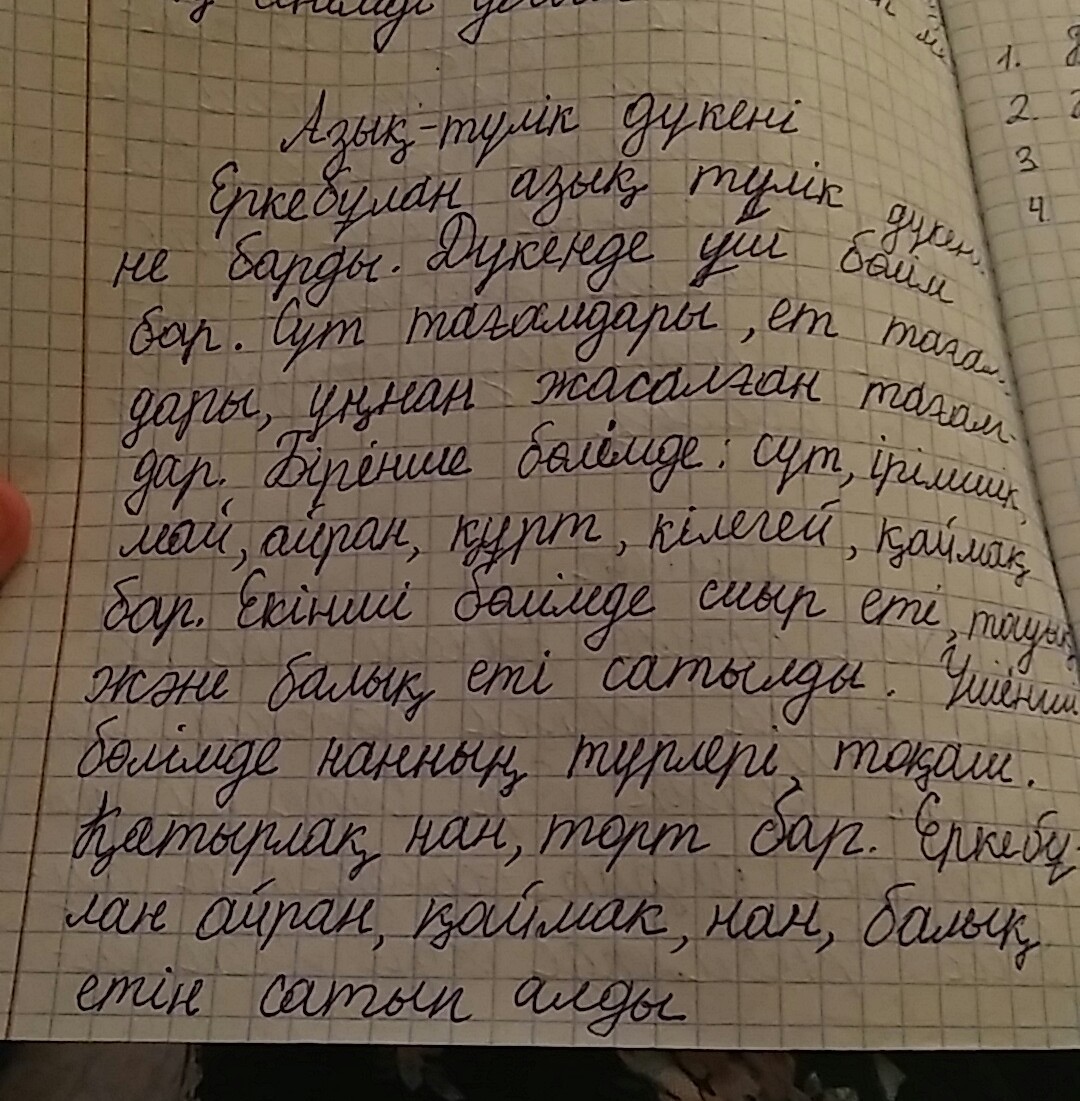 Азық-түлік дүкені
Еркебұлан азық түлік дүкен
не барды. Дүкенде үш бөлім
бар. Сүт тағамдары, ет тағам
дары, ұннан жасалған тағам-
дар. Бірінше бөлімде: сүт, ірімшік,
май, айран, құрт, кілегей, қаймақ
бар. Екінші бөлімде сиыр еті, тауық
және балық еті сатылды. Үшінші
бөлімде нанның түрлері, тоқаш.
Қатырлақ нан, торт бар. Еркебұ-
лан айран, қаймак, нан, балық
етін сатып алды
1.
2.
3
4.